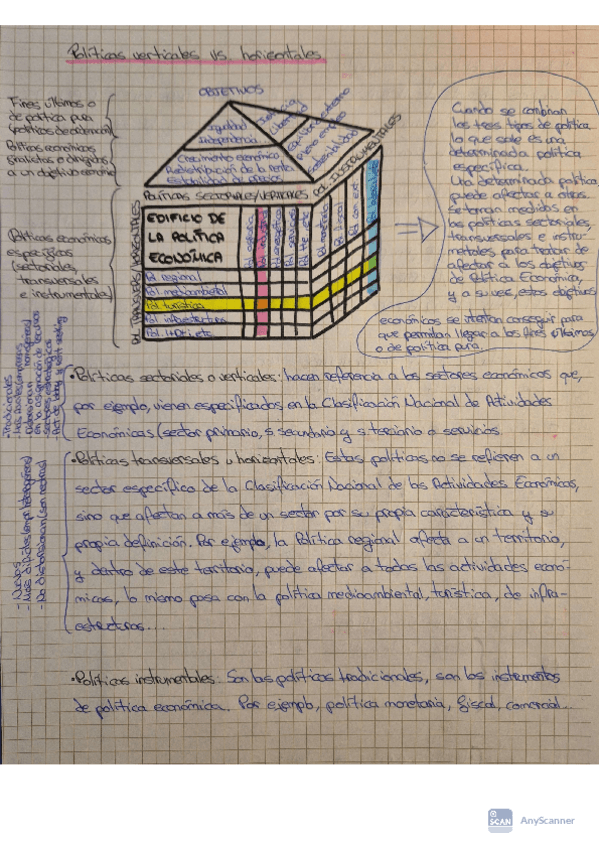 Políticas verticales vs. horizontales
OBJETIVOS
Fines últimos o
de política pura
Políticas económicas
a un objetivo económico
Igualdad
Independencia
Justicia
Libertad
Crecimiento económico
Redistribución de la renta
Estabilidad de precios
Equilibrio externo
Pleno empleo
Sostenibilidad
POLÍTICAS SECTORIALES/VERTICALES
POL. INSTRUMENTALES
POL. TRANSVERSALES/HORIZONTALES
EDIFICIO DE
LA POLÍTICA
ECONÓMICA
Pol. industrial
Pol. monetaria
Pol. fiscal
Pol. com. ext.
Pol. regional
Pol. medioambiental
Pol. turística
Pol. infraestructuras
Pol. I+D+i, etc
Políticas económicas
específicas
(sectoriales,
transversales
e instrumentales)
Cuando se combinan
los tres tipos de política
lo que sale es una
determinada política
específica.
Una determinada política
puede afectar a otras.
Se toman medidas en
las políticas sectoriales,
transversales e instru-
mentales para tratar de
afectar a los objetivos
de Política Económica,
y a su vez, estos objetivos
económicos se intentan conseguir para
que permitan llegar a los fines últimos
o de política pura
-Tradicionales
• Políticas sectoriales o verticales: hacen referencia a los sectores económicos que,
por ejemplo, vienen especificados en la Clasificación Nacional de Actividades
Económicas (sector primario, s. secundario y s. terciario o servicios.
- Nuevas
- No distorsionan (son neutras)
• Políticas transversales u horizontales: Estas políticas no se refieren a un
sector específico de la Clasificación Nacional de las Actividades Económicas,
sino que afectan a más de un sector por su propia característica y su
propia definición. Por ejemplo, la Política regional afecta a un territorio,
y dentro de este territorio, puede afectar a todas las actividades econó-
micas, lo mismo pasa con la política medioambiental, turística, de infra-
estructuras....
• Políticas instrumentales: Son las políticas tradicionales, son los instrumentos
de política económica. Por ejemplo, política monetaria, fiscal, comercial...
SCAN
AnyScanner